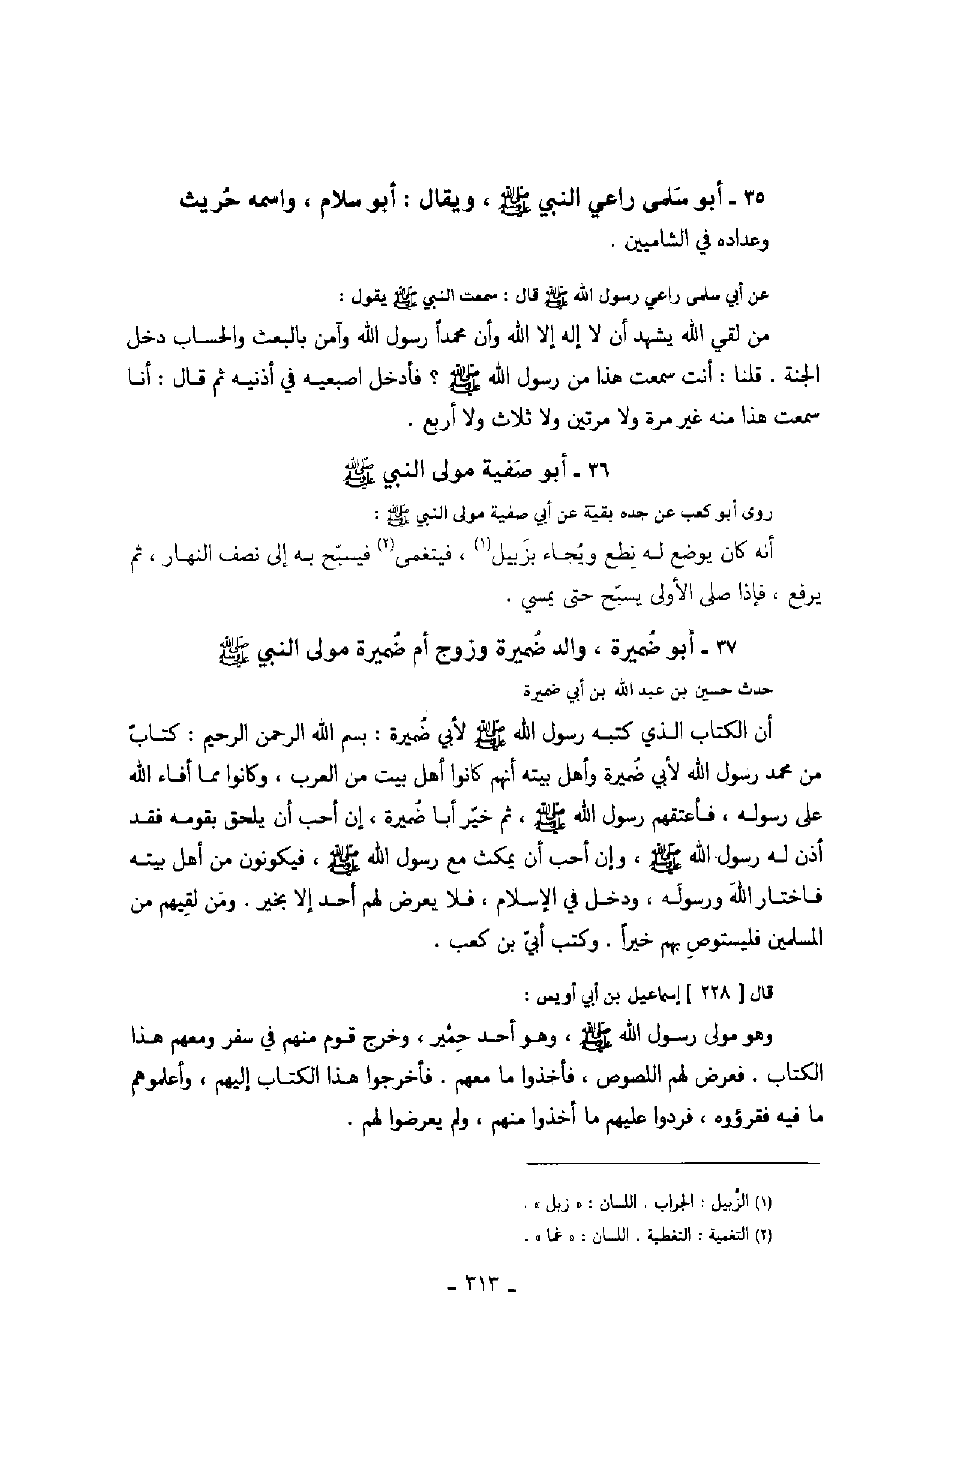 ٣٥ ـ أبو سَلمى راعي النبي ﷺ ، ويقال : أبو سلام ، واسمه حُريث
وعداده في الشاميين .
عن أبي سلمى راعي رسول الله ﷺ قال : سمعت النبي ﷺ يقول :
من لقي الله يشهد أن لا إله إلا الله وأن محمداً رسول الله وآمن بالبعث والحساب دخل
الجنة . قلنا : أنت سمعت هذا من رسول الله ﷺ ؟ فأدخل اصبعيه في أذنيه ثم قال : أنا
سمعت هذا منه غير مرة ولا مرتين ولا ثلاث ولا أربع .
٣٦ ـ أبو صَفية مولى النبي ﷺ
روى أبو كعب عن جده بقية عن أبي صفية مولى النبي ﷺ :
أنه كان يوضع له نِطع ويُجاء بزَبيل(١) ، فيتغمى(٢) فيسبّح به إلى نصف النهار ، ثم
يرفع ، فإذا صلى الأولى يسبّح حتى يمسي .
٣٧ ـ أبو ضُميرة ، والد ضُميرة وزوج أم ضُميرة مولى النبي ﷺ
حدث حسين بن عبد الله بن أبي ضميرة
أن الكتاب الذي كتبه رسول الله ﷺ لأبي ضُميرة : بسم الله الرحمن الرحيم : كتابٌ
من محمد رسول الله لأبي ضُميرة وأهل بيته أنهم كانوا أهل بيت من العرب ، وكانوا مما أفاء الله
على رسوله ، فأعتقهم رسول الله ﷺ ، ثم خيّر أبا ضُميرة ، إن أحب أن يلحق بقومه فقد
أذن له رسول الله ﷺ ، وإن أحب أن يمكث مع رسول الله ﷺ ، فيكونون من أهل بيته
فاختار اللهَ ورسولَه ، ودخل في الإسلام ، فلا يعرض لهم أحد إلا بخير . ومَن لقِيهم من
المسلمين فليستوصِ بهم خيراً . وكتب أبيّ بن كعب .
قال [ ٢٢٨ ] إسماعيل بن أبي أويس :
وهو مولى رسول الله ﷺ ، وهو أحد حِمْير ، وخرج قوم منهم في سفر ومعهم هذا
الكتاب . فعرض لهم اللصوص ، فأخذوا ما معهم . فأخرجوا هذا الكتاب إليهم ، وأعلموهم
ما فيه فقرؤوه ، فردوا عليهم ما أخذوا منهم ، ولم يعرضوا لهم .
(١) الزَّبيل : الجراب . اللسان : « زبل » .
(٢) التغمية : التغطية . اللسان : « غما » .
ـ ٣١٣ ـ